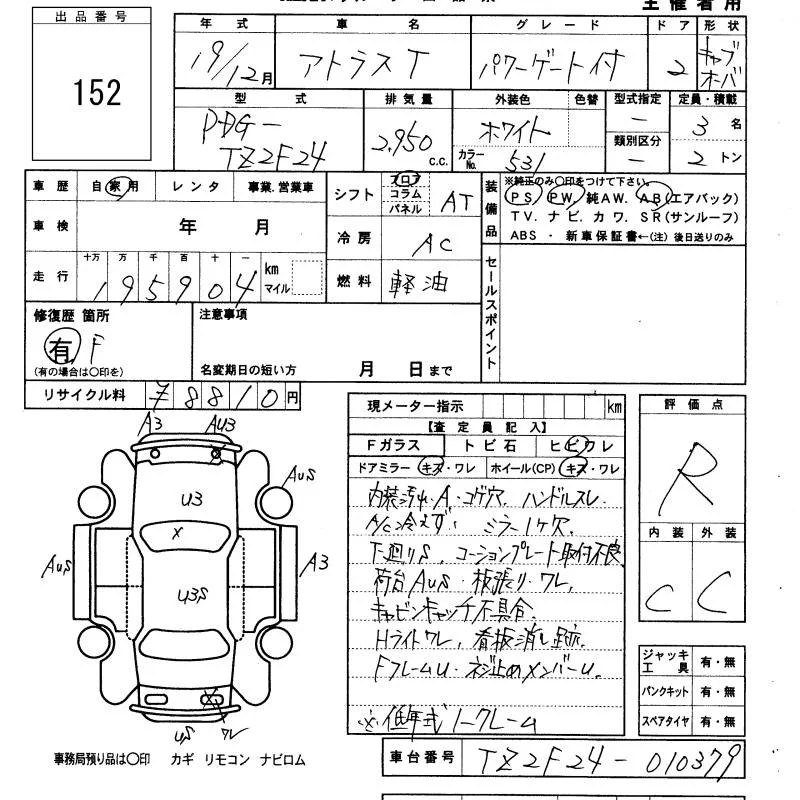 主催者用
出品番号
152
年式 車名 グレード ドア 形状
19/12月 アトラスT パワーゲート付 2 キャブオーバ
型式 排気量 外装色 色替 型式指定 定員・積載
PDG-TZ2F24 2,950 c.c. ホワイト カラーNo. 531 ー 類別区分 ー 3名 2トン
車歴 自家用 レンタ 事業.営業車
車検 年 月
走行 十万 万 千 百 十 一 km マイル
195904
シフト フロア コラム パネル AT
冷房 AC
燃料 軽油
装備品
※純正のみ〇印をつけて下さい。
PS. PW. 純AW. AB(エアバック)
TV. ナビ. カワ. SR(サンルーフ)
ABS ・ 新車保証書←(注) 後日送りのみ
セールスポイント
修復歴 箇所
有 F
(有の場合は〇印を)
注意事項
名変期日の短い方 月 日まで
リサイクル料 ¥8810円
現メーター指示 km
【査定員記入】
Fガラス トビ石 ヒビワレ
ドアミラー キズ・ワレ ホイール(CP) キズ・ワレ
内装汚れ.A.コゲ穴. ハンドルスレ.
A/C冷えず. ミラー1ヶ穴.
T廻りS. コーションプレート取付不良
荷台AUS. 板張り.ワレ.
キャビンキャッチ不具合.
Hライトワレ. 看板消し跡.
FフレームU. ネジ止めメンバーU.
※低年式ノークレーム
評価点
R
内装 外装
C C
ジャッキ工具 有・無
パンクキット 有・無
スペアタイヤ 有・無
A3 AU3
AUS
U3
X
AUS A3
U3S
US ワレ
事務局預り品は〇印 カギ リモコン ナビロム
車台番号 TZ2F24-010379